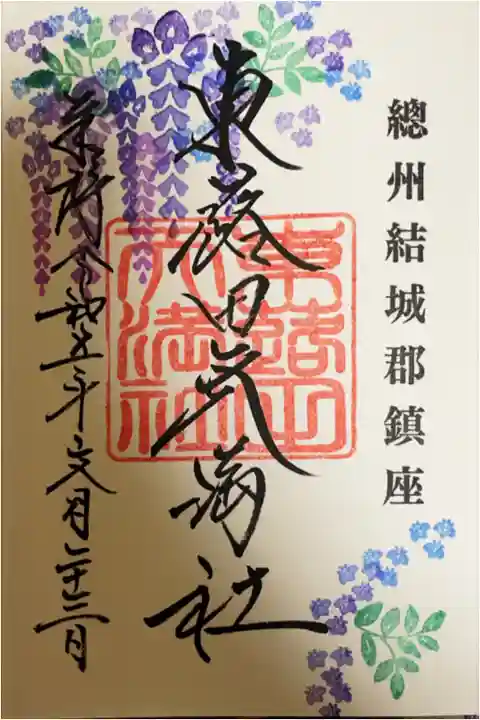 總州結城郡鎮座
東蕗田天満社
奉拝 令和五年文月二十二日
東蕗田
天満社